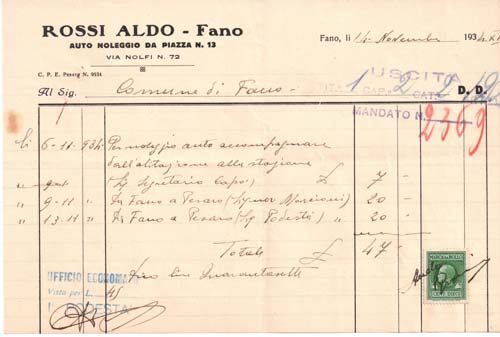 ROSSI ALDO - Fano
AUTO NOLEGGIO DA PIAZZA N. 13
VIA NOLFI N. 72
C. P. E. Pesaro N. 9534
Fano, li 14 Novembre 1934 XI
USCITA
TIT. 1 CAP. 2 CAT. 2
Al Sig. Comune di Fano D. D.
MANDATO N. 2369
li 6-11 934 Per noleggio auto accompagnare
dall'abitazione alla stazione
Sg Segretario Capo £ 7 -
" 9-11 " Da Fano a Pesaro (Signor 20 -
" 13.11 " Da Fano a Pesaro (Sg Podestà) " 20 -
Totale £ 47
Dico Lire Quarantasette
UFFICIO ECONOMATO
Visto per L. 45
IL PODESTA'
MARCA DA BOLLO